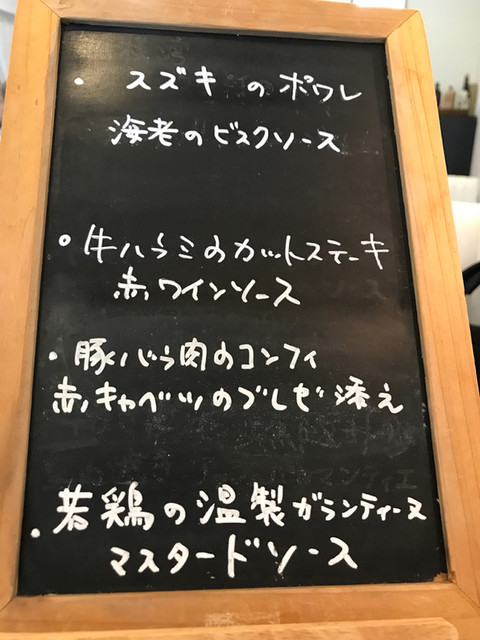 ・ スズキ の ポワレ
海老のビスクソース
・牛ハラミのカットステーキ
赤ワインソース
・豚バラ肉のコンフィ
赤キャベツのブレゼ添え
・若鶏の温製ガランティーヌ
マスタードソース